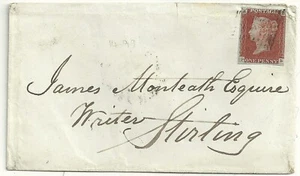 POSTAGE
ONE PENNY
James Monteath Esquire
Writer
Stirling